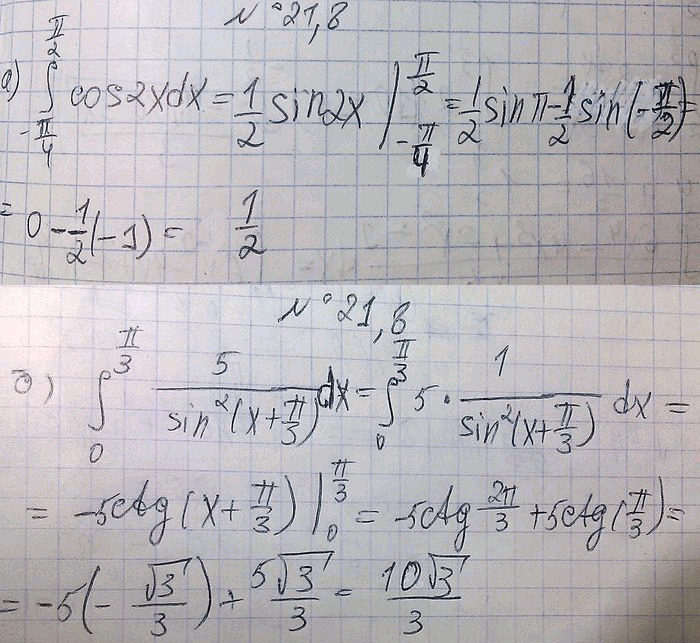 N°21,8
а) ∫_{-π/4}^{π/2} cos2xdx = 1/2 sin2x |_{-π/4}^{π/2} = 1/2 sinπ - 1/2 sin(-π/2) =
= 0 - 1/2 (-1) = 1/2
N°21,8
б) ∫_0^{π/3} 5/sin²(x+π/3) dx = ∫_0^{π/3} 5 · 1/sin²(x+π/3) dx =
= -5ctg(x+π/3) |_0^{π/3} = -5ctg 2π/3 + 5ctg(π/3) =
= -5(-√3/3) + 5√3/3 = 10√3/3